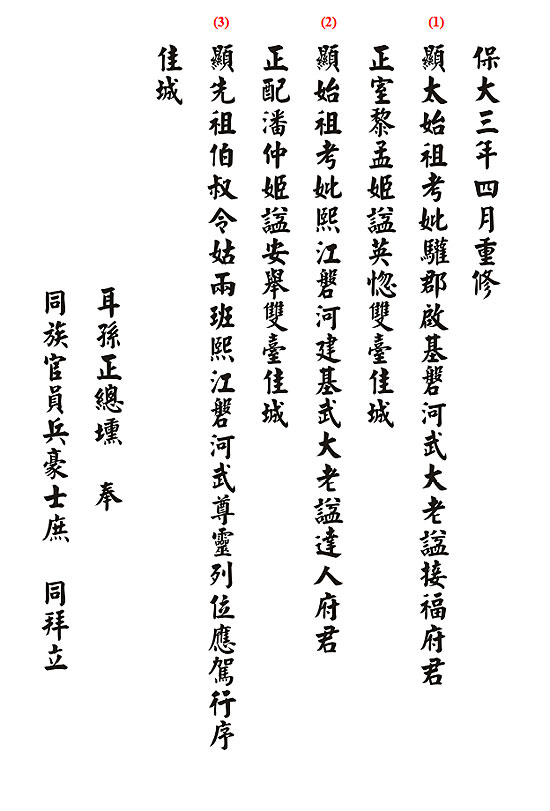 (1)
(2)
(3)
保大三年四月重修
顯太始祖考妣驩郡啟基磐河武大老諡接福府君
正室黎孟姬諡英惚雙臺佳城
顯始祖考妣熙江磐河建基武大老諡達人府君
正配潘仲姬諡安舉雙臺佳城
顯先祖伯叔令姑兩班熙江磐河武尊靈列位應駕行序
佳城
耳孫正總壎 奉
同族官員兵豪士庶 同拜立